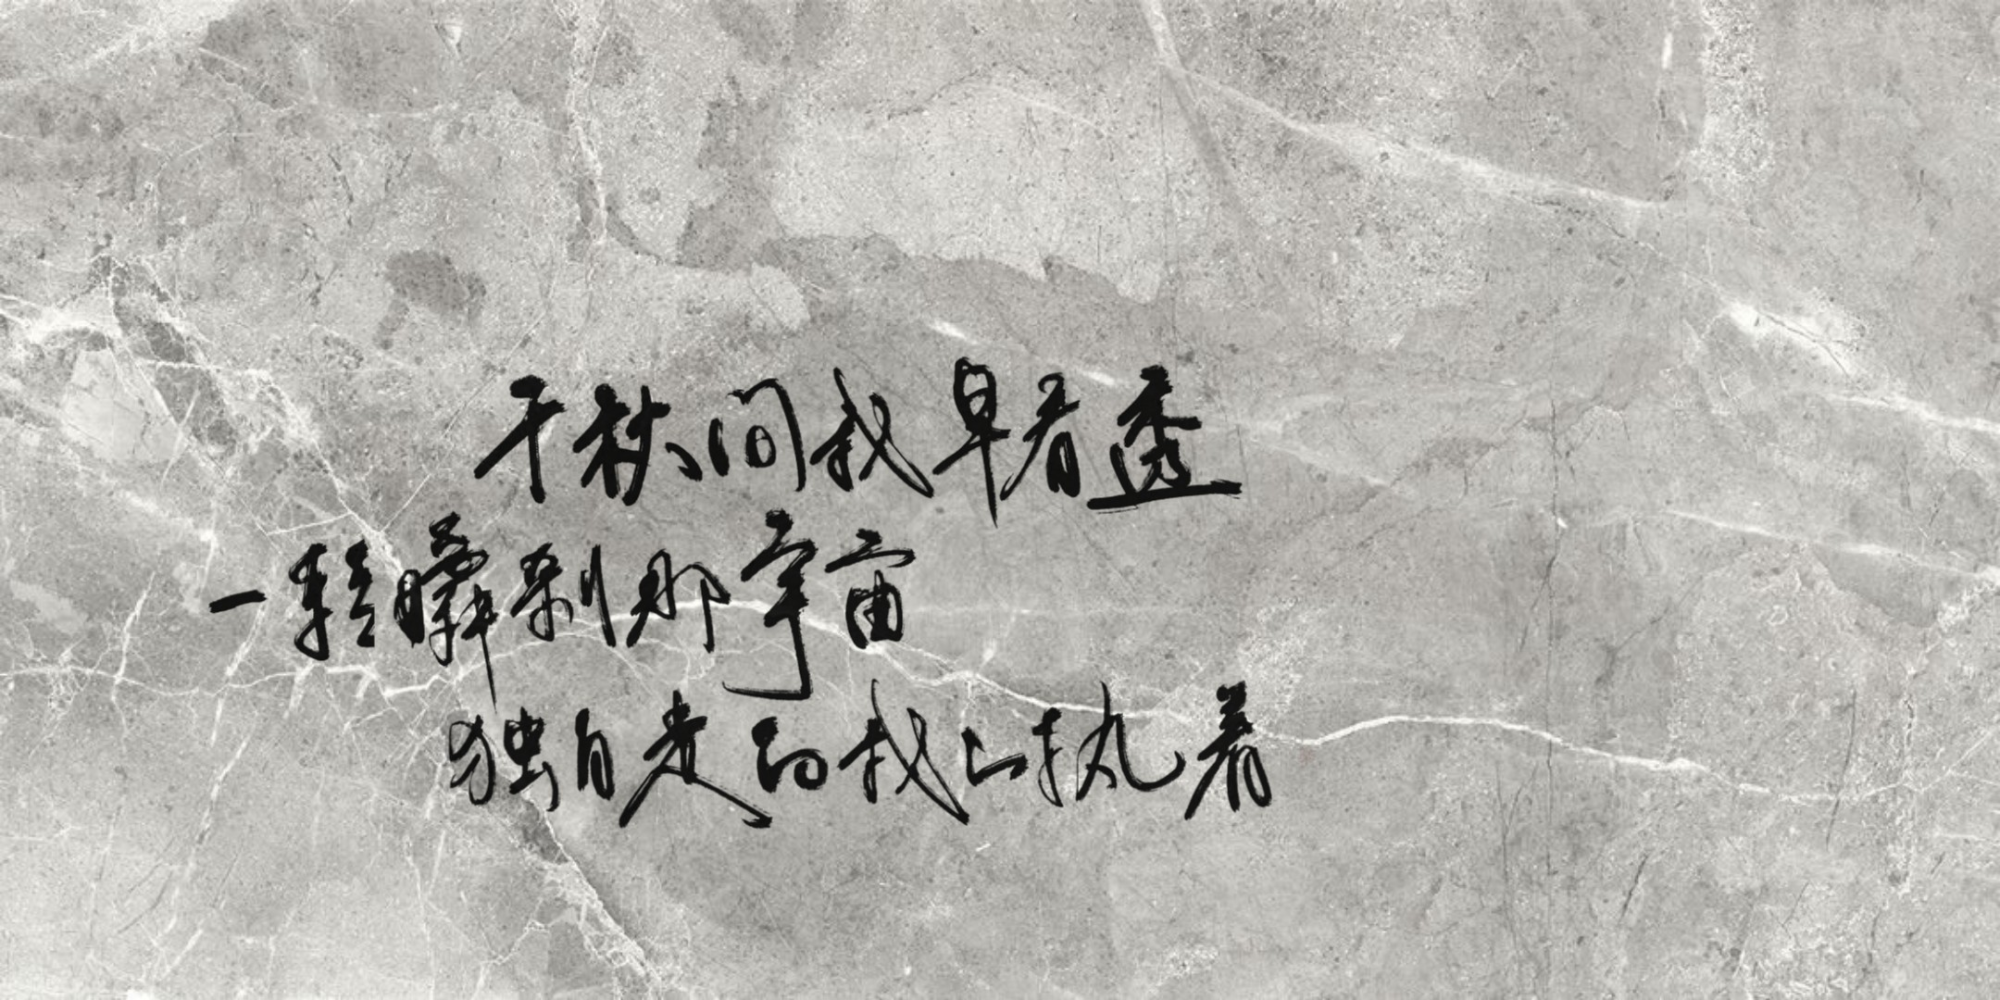 千秋间我早看透
一转瞬刹那宇宙
独自走的我心执着